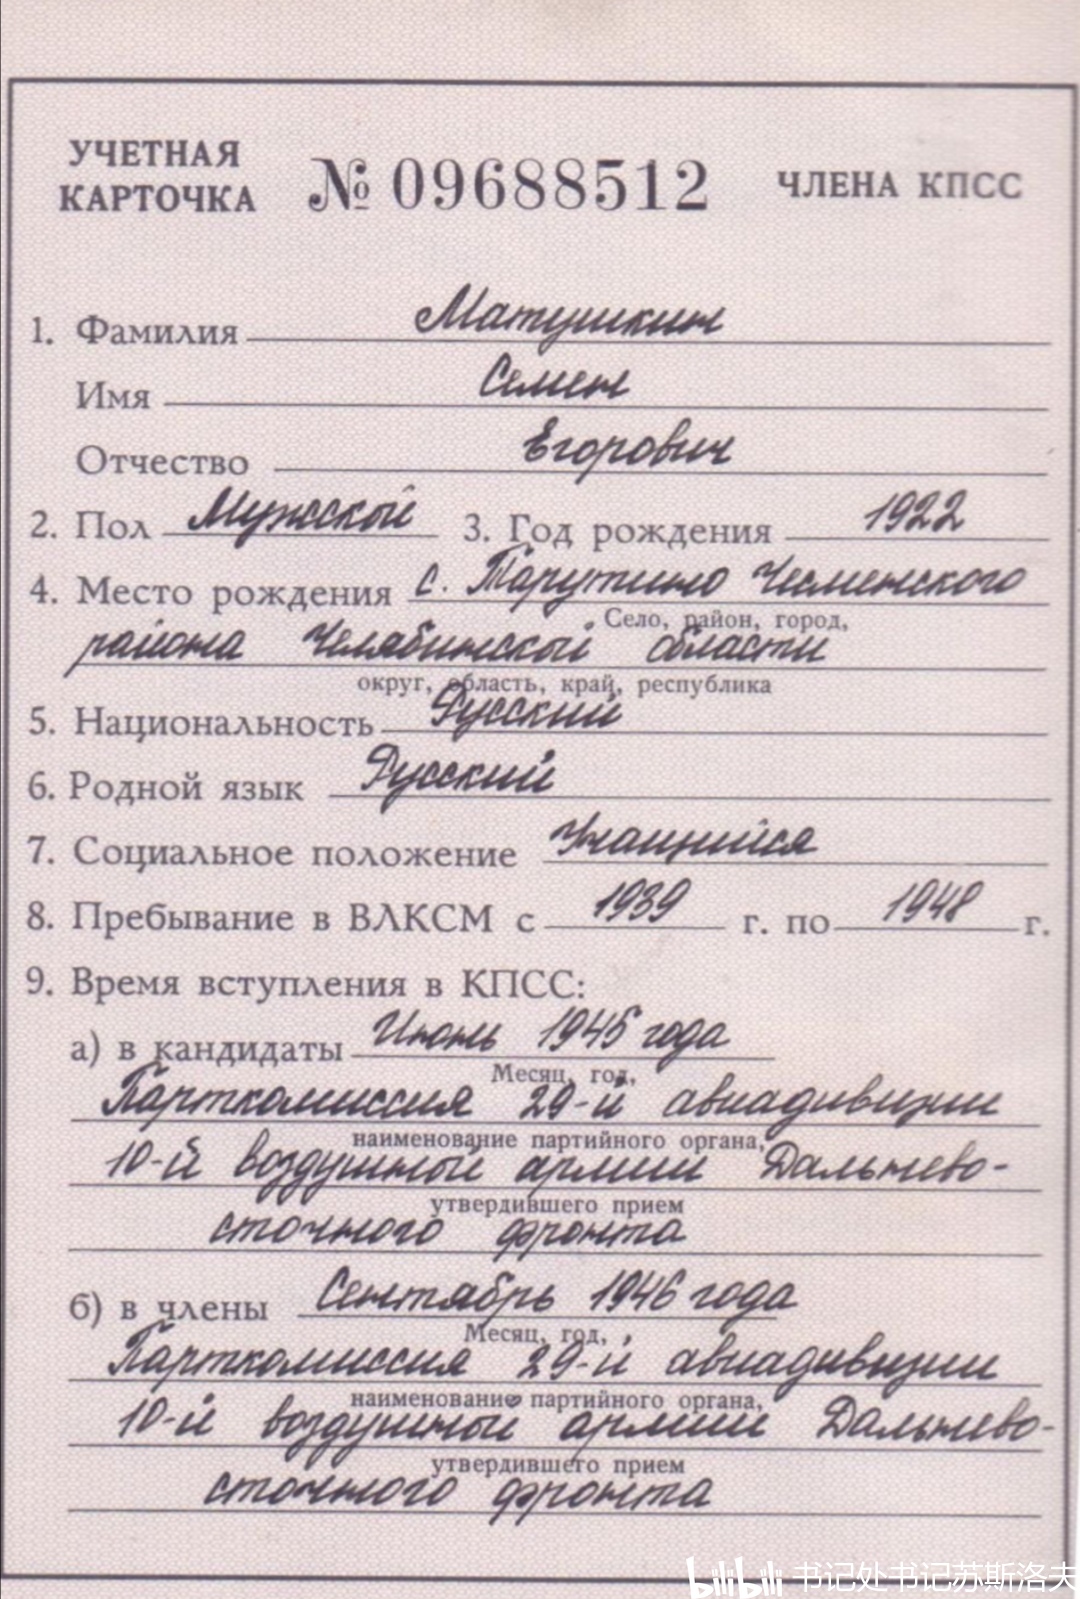 УЧЕТНАЯ КАРТОЧКА № 09688512 ЧЛЕНА КПСС
1. Фамилия Матушкин
Имя Семен
Отчество Егорович
2. Пол Мужской 3. Год рождения 1922
4. Место рождения с. Тарутино Чесменского
Село, район, город,
района Челябинской области
округ, область, край, республика
5. Национальность Русский
6. Родной язык Русский
7. Социальное положение Учащийся
8. Пребывание в ВЛКСМ с 1939 г. по 1948 г.
9. Время вступления в КПСС:
а) в кандидаты Июнь 1945 года
Месяц, год,
Парткомиссия 29-й авиадивизии
наименование партийного органа,
10-й воздушной армии Дальнево-
утвердившего прием
сточного фронта
б) в члены Сентябрь 1946 года
Месяц, год,
Парткомиссия 29-й авиадивизии
наименование партийного органа,
10-й воздушной армии Дальнево-
утвердившего прием
сточного фронта
bilibili 书记处书记苏斯洛夫